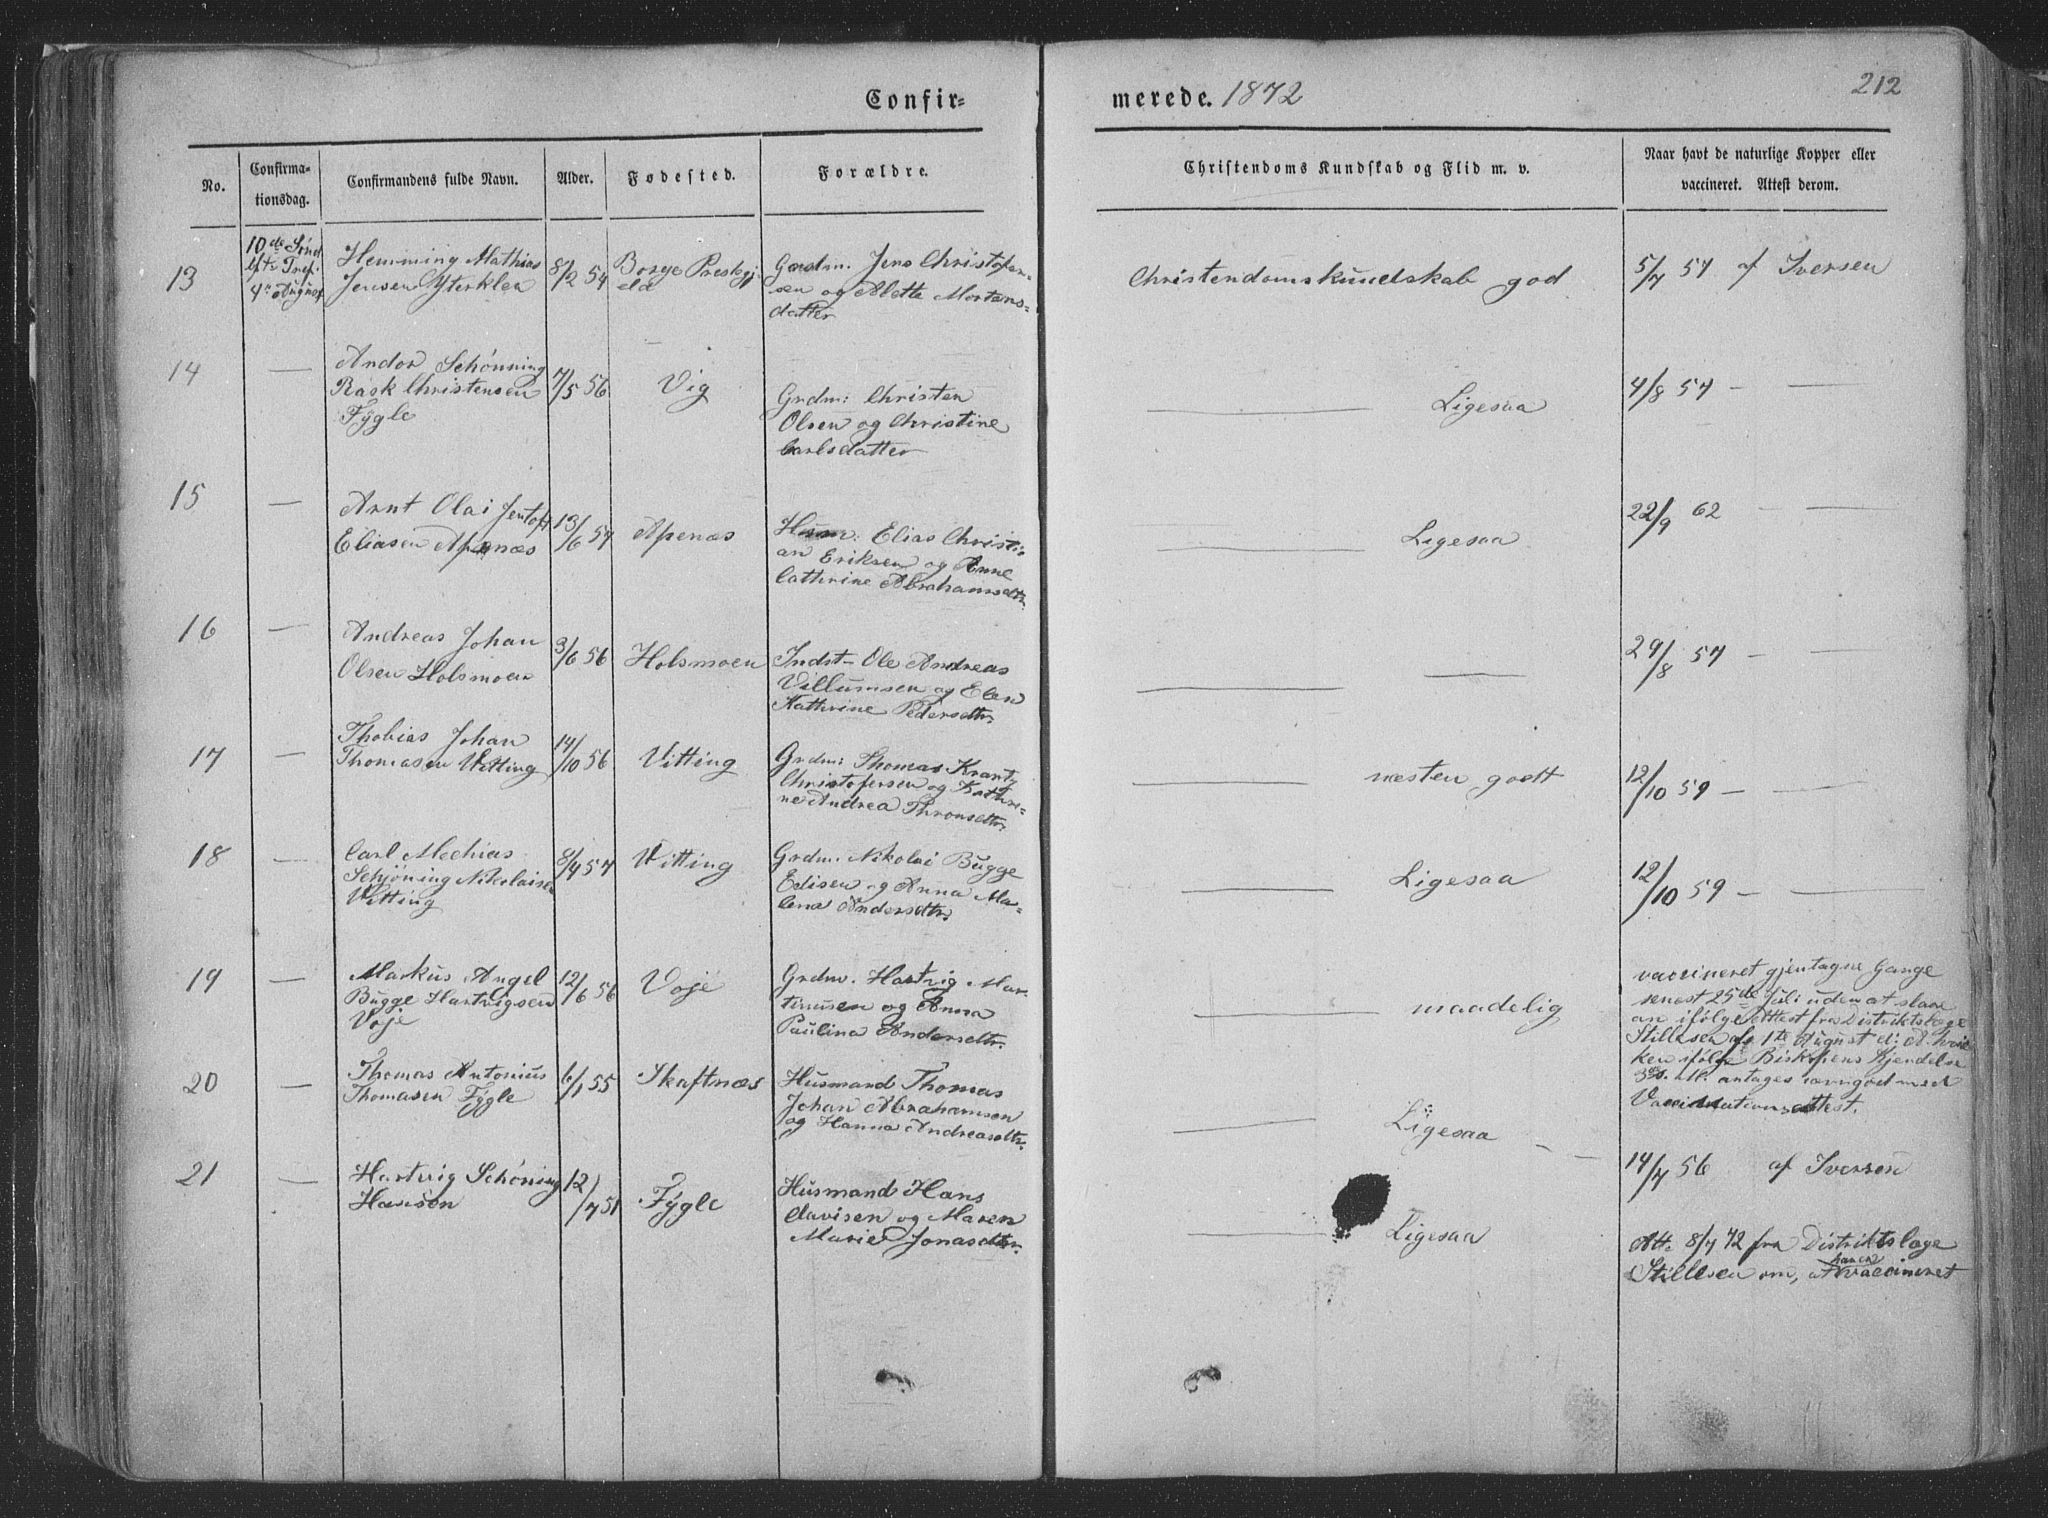 Confir-
merede. 1872
212
No.
Confirma-
tionsdag.
Confirmandens fulde Navn.
Alder.
Fødested.
Forældre.
Christendoms Kundskab og Flid m. v.
Naar havt de naturlige Kopper eller
vaccineret. Attest derom.
13
10de Sønd.
efts Tref.
4de August
Hemming Mathias
Jensen Ytterklev
8/2 54
Borge Præstgj-
eld
Gaardm. Jens Christofer-
sen og Alette Mortens-
datter
Christendomskundskab god
5/7 57 af Iversen
14
—
Andor Schönning
Rask Christensen
Fygle
7/5 56
Vig
Grdm: Christen
Olsen og Christine
Carlsdatter
— Ligesaa
4/8 57 — —
15
—
Arnt Olai Jentoft
Eliasen Apenæs
13/6 57
Apenæs
Husm: Elias Christi-
an Eriksen og Anne
Cathrine Abrahamsdtr.
— Ligesaa
22/9 62 — —
16
—
Andreas Johan
Olsen Holsmoen
3/6 56
Holsmoen
Indst- Ole Andreas
Villumsen og Elen
Kathrine Pedersdtr.
— —
29/8 57 — —
17
—
Thobias Johan
Thomasen Vitting
14/10 56
Vitting
Grdm: Thomas Krantz
Christofersen og Kathri-
ne Andrea Thronsdtr.
— næsten godt
12/10 59 — —
18
—
Carl Mechias
Schjöning Nikolaisen
Vitting
8/4 57
Vitting
Grdm. Nikolai Bugge
Edisen og Anna Ma-
lena Andersdtr.
— Ligesaa
12/10 59 — —
19
—
Markus Angel
Bugge Hartvigsen
Voje
12/6 56
Voje
Grdm. Hartvig Mar-
tinusen og Anna
Paulina Andersdtr.
— maadelig
vaccineret gjentagne Gange
senest 25de Juli uden at slaae
an ifølge Attest fra Distriktslæge
Stillesen af 1te August d: A. hvil-
ken ifølge Biskopens Kjendelse
3die. M. antages jævngod med
Vaccinationsattest.
20
—
Thomas Antonius
Thomasen Fygle
6/1 55
Skaftnæs
Husmand Thomas
Johan Abrahamsen
og Hanna Andreasdtr.
— Ligesaa —
14/7 56 af Iversen
21
—
Hartvig Schöning
Hansen
12/7 51
Fygle
Husmand Hans
Clavisen og Maren
Marie Jonasdtr.
— Ligesaa
Att. 8/7 72 fra Distriktslæge
Stillesen om, at han er vaccineret